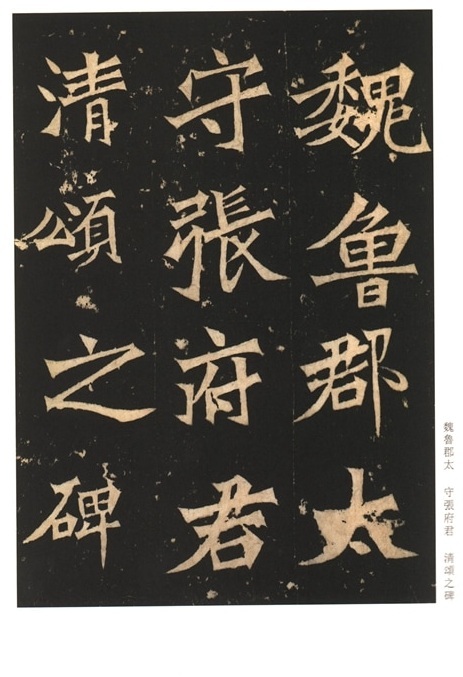 魏魯郡太
守張府君
清頌之碑
魏魯郡太　守張府君　清頌之碑